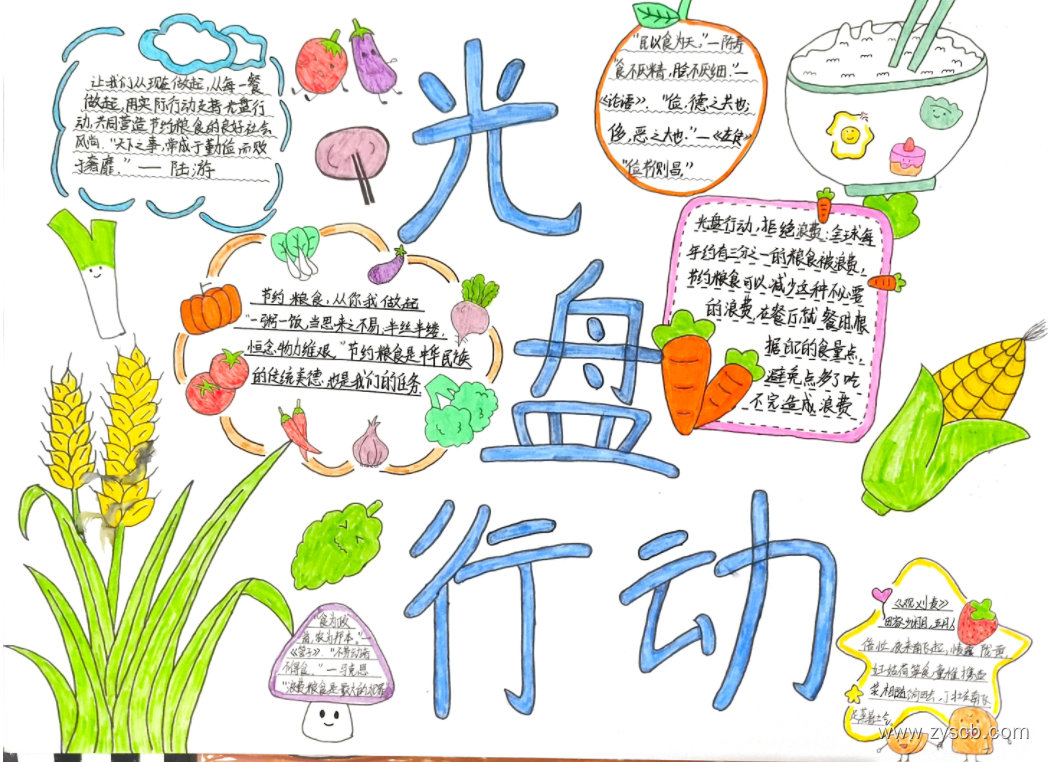 让我们从现在做起,从每一餐
做起,用实际行动支持光盘行
动,共同营造节约粮食的良好社会
风尚。"天下之事,常成于勤俭而败
于奢靡。"——陆游
"民以食为天。"—陈寿
"食不厌精,脍不厌细."—
《论语》."俭,德之共也;
侈,恶之大也."—《左传》
"俭节则昌
光
盘
行动
光盘行动,拒绝浪费:全球每
年约有三分之一的粮食被浪费,
节约粮食可以减少这种不必要
的浪费,在餐厅就餐时根
据自己的食量点,
避免点多了吃
不完造成浪费
节约粮食,从你我做起
"一粥一饭,当思来之不易,半丝半缕,
恒念物力维艰"节约粮食是中华民族
的传统美德,也是我们的任务.
"食为政
首,农为邦本."—
《管子》."不劳动者
不得食."—马克思
"浪费粮食是最大的犯罪
《观刈麦》
田家少闲月,五月人
倍忙,夜来南风起,小麦覆陇黄,
妇姑荷箪食,童稚携壶
浆,相随饷田去,丁壮在南冈
www.zyscb.com